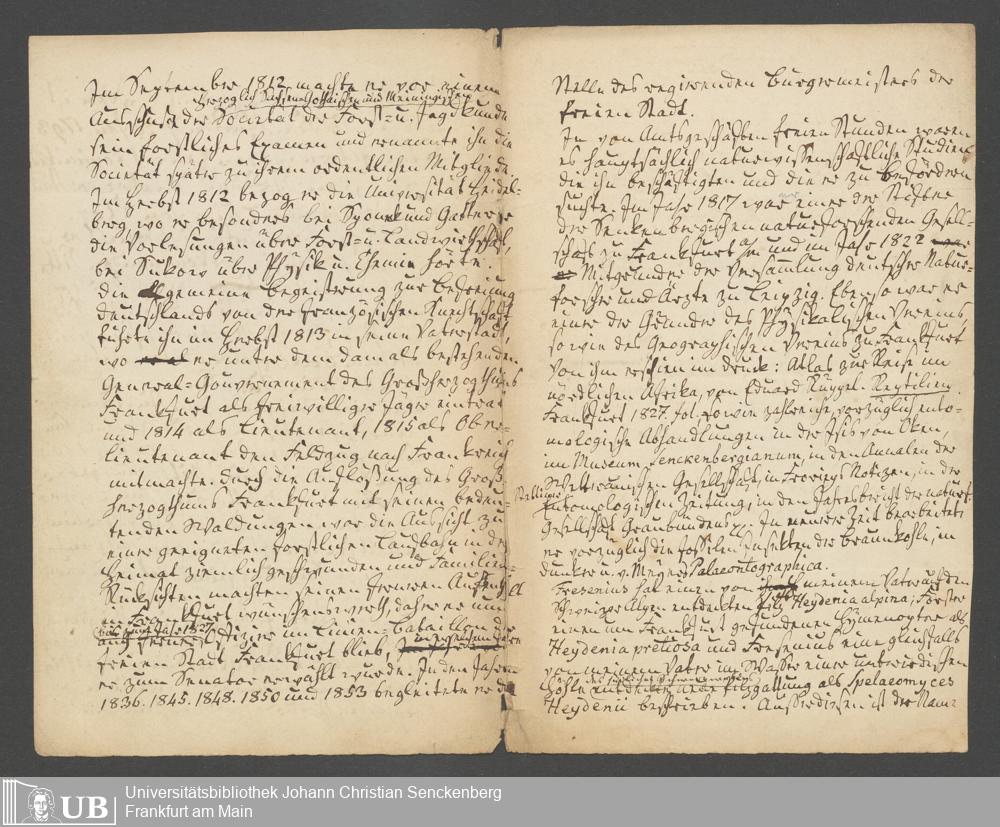 Im September 1812 machte er vor einem
Herzoglich Sachsen-Gothaischen und Meiningischen
Ausschusse der Societät der Forst- u. Jagdkunde
sein forstliches Examen und ernannte ihn die
Societät später zu ihrem ordentlichen Mitgliede.
Im Herbst 1812 bezog er die Universität Heidel-
berg, wo er besonders bei Sponek und Gatterer
die Vorlesungen über Forst- u. Landwirthschaft,
bei Sukow über Physik u. Chemie hörte.
Die allgemeine Begeisterung zur Befreiung
Deutschlands von der Französischen Knechtschaft
führte ihn im Herbst 1813 in seine Vaterstadt,
wo er unter dem damals bestehenden
General-Gouvernement des Großherzogthums
Frankfurt als freiwilliger Jäger eintrat
und 1814 als Lieutenant, 1815 als Ober-
lieutenant den Feldzug nach Frankreich
mitmachte. Durch die Auflösung des Groß-
herzogthums Frankfurt mit seinen bedeu-
tenden Waldungen war die Aussicht zu
einer geeigneten forstlichen Laufbahn in der
Heimat ziemlich geschwunden und Familien-
Rücksichten machten seinen ferneren Aufenthalt
in Frankfurt wünschenswerth, daher er nun
bis zum Jahr 1827
Offizier im Linien-Bataillon der
freien Stadt Frankfurt blieb, in welchem Jahre
er zum Senator erwählt wurde. In den Jahren
1836. 1845. 1848. 1850 und 1853 begleitete er die
Stelle des regierenden Bürgermeisters der
freien Stadt.
In von Amtsgeschäften freien Stunden waren
es hauptsächlich naturwissenschaftliche Studien
die ihn beschäftigten und die er zu befördern
suchte. Im Jahr 1817 war er einer der Stifter
der Senkenbergischen naturforschenden Gesell-
schaft zu Frankfurt a/m und im Jahr 1822
Mitgründer der Versammlung deutscher Natur-
forscher und Ärzte zu Leipzig. Ebenso war er
einer der Gründer des Physikalischen Vereins,
sowie des Geographischen Vereins zu Frankfurt
Von ihm erschien im Druck: Atlas zur Reise im
nördlichen Afrika, von Eduard Rüppel. Reptilien.
Frankfurt 1827. fol. sowie zahlreiche, vorzüglich ento-
mologische Abhandlungen in der Isis von Oken,
im Museum Senckenbergianum, in den Annalen der
Wetterauischen Gesellschaft, in Frorieps Notizen, in der
Stettiner
Entomologischen Zeitung, in den Jahresbericht der naturf.
Gesellschaft Graubündens pp. In neuerer Zeit bearbeitete
er vorzüglich die fossilen Insekten der Braunkohle, in
Dunker u. v. Meyers Palaeontographica.
Fresenius hat einen von meinem Vater auf den
Schweizer Alpen entdeckten Pilz Heydenia alpina; Förster
einen um Frankfurt gefundenen Hymenopter als
Heydenia pretiosa und Fresenius eine gleichfalls
von meinem Vater im Wasser einer unterirdischen
Höhle entdeckte neue Pilzgattung als Spelaeomyces
Heydenii beschrieben. Außer diesen ist der Name
UB
Universitätsbibliothek Johann Christian Senckenberg
Frankfurt am Main